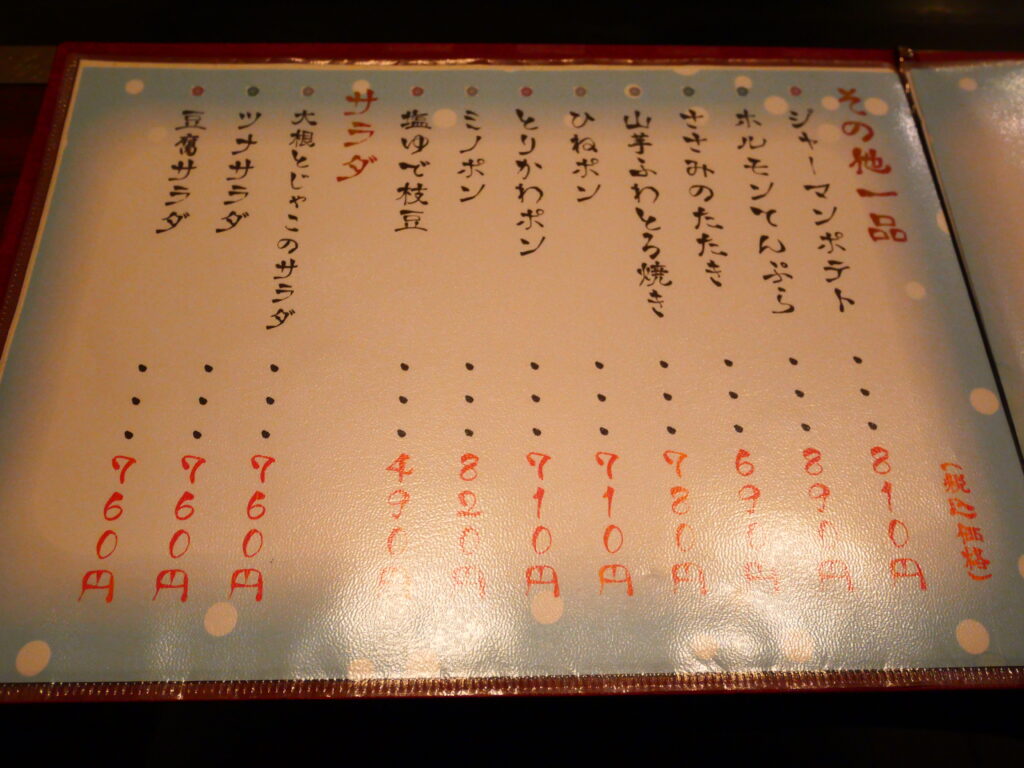 その他一品
(税込価格)
ジャーマンポテト・・・810円
ホルモンてんぷら・・・890円
ささみのたたき・・・690円
山芋ふわとろ焼き・・・780円
ひねポン・・・710円
とりかわポン・・・710円
ミノポン・・・820円
塩ゆで枝豆・・・490円
サラダ
大根とじゃこのサラダ・・・760円
ツナサラダ・・・760円
豆腐サラダ・・・760円